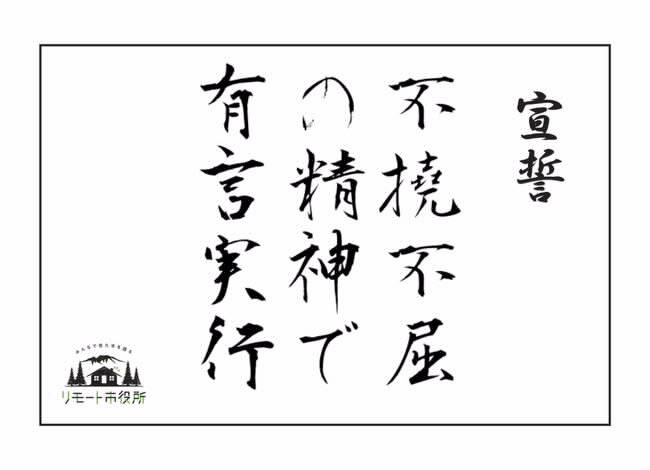 宣誓
不撓不屈
の精神で
有言実行
みんなで育てる市を語る
リモート市役所